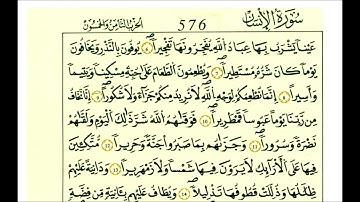 سُورَةُ الْإِنسَانِ 576 الحزب الثامن والخمسون
عَيْنًا يَشْرَبُ بِهَا عِبَادُ اللَّهِ يُفَجِّرُونَهَا تَفْجِيرًا ٦ يُوفُونَ بِالنَّذْرِ وَيَخَافُونَ
يَوْمًا كَانَ شَرُّهُ مُسْتَطِيرًا ٧ وَيُطْعِمُونَ الطَّعَامَ عَلَىٰ حُبِّهِ مِسْكِينًا وَيَتِيمًا
وَأَسِيرًا ٨ إِنَّمَا نُطْعِمُكُمْ لِوَجْهِ اللَّهِ لَا نُرِيدُ مِنكُمْ جَزَآءً وَلَا شُكُورًا ٩ إِنَّا نَخَافُ
مِن رَّبِّنَا يَوْمًا عَبُوسًا قَمْطَرِيرًا ١٠ فَوَقَىٰهُمُ اللَّهُ شَرَّ ذَٰلِكَ الْيَوْمِ وَلَقَّىٰهُمْ
نَضْرَةً وَسُرُورًا ١١ وَجَزَىٰهُم بِمَا صَبَرُوا جَنَّةً وَحَرِيرًا ١٢ مُتَّكِئِينَ
فِيهَا عَلَى الْأَرَآئِكِ لَا يَرَوْنَ فِيهَا شَمْسًا وَلَا زَمْهَرِيرًا ١٣ وَدَانِيَةً عَلَيْهِمْ
ظِلَٰلُهَا وَذُلِّلَتْ قُطُوفُهَا تَذْلِيلًا ١٤ وَيُطَافُ عَلَيْهِم بِـَٔانِيَةٍ مِّن فِضَّةٍ